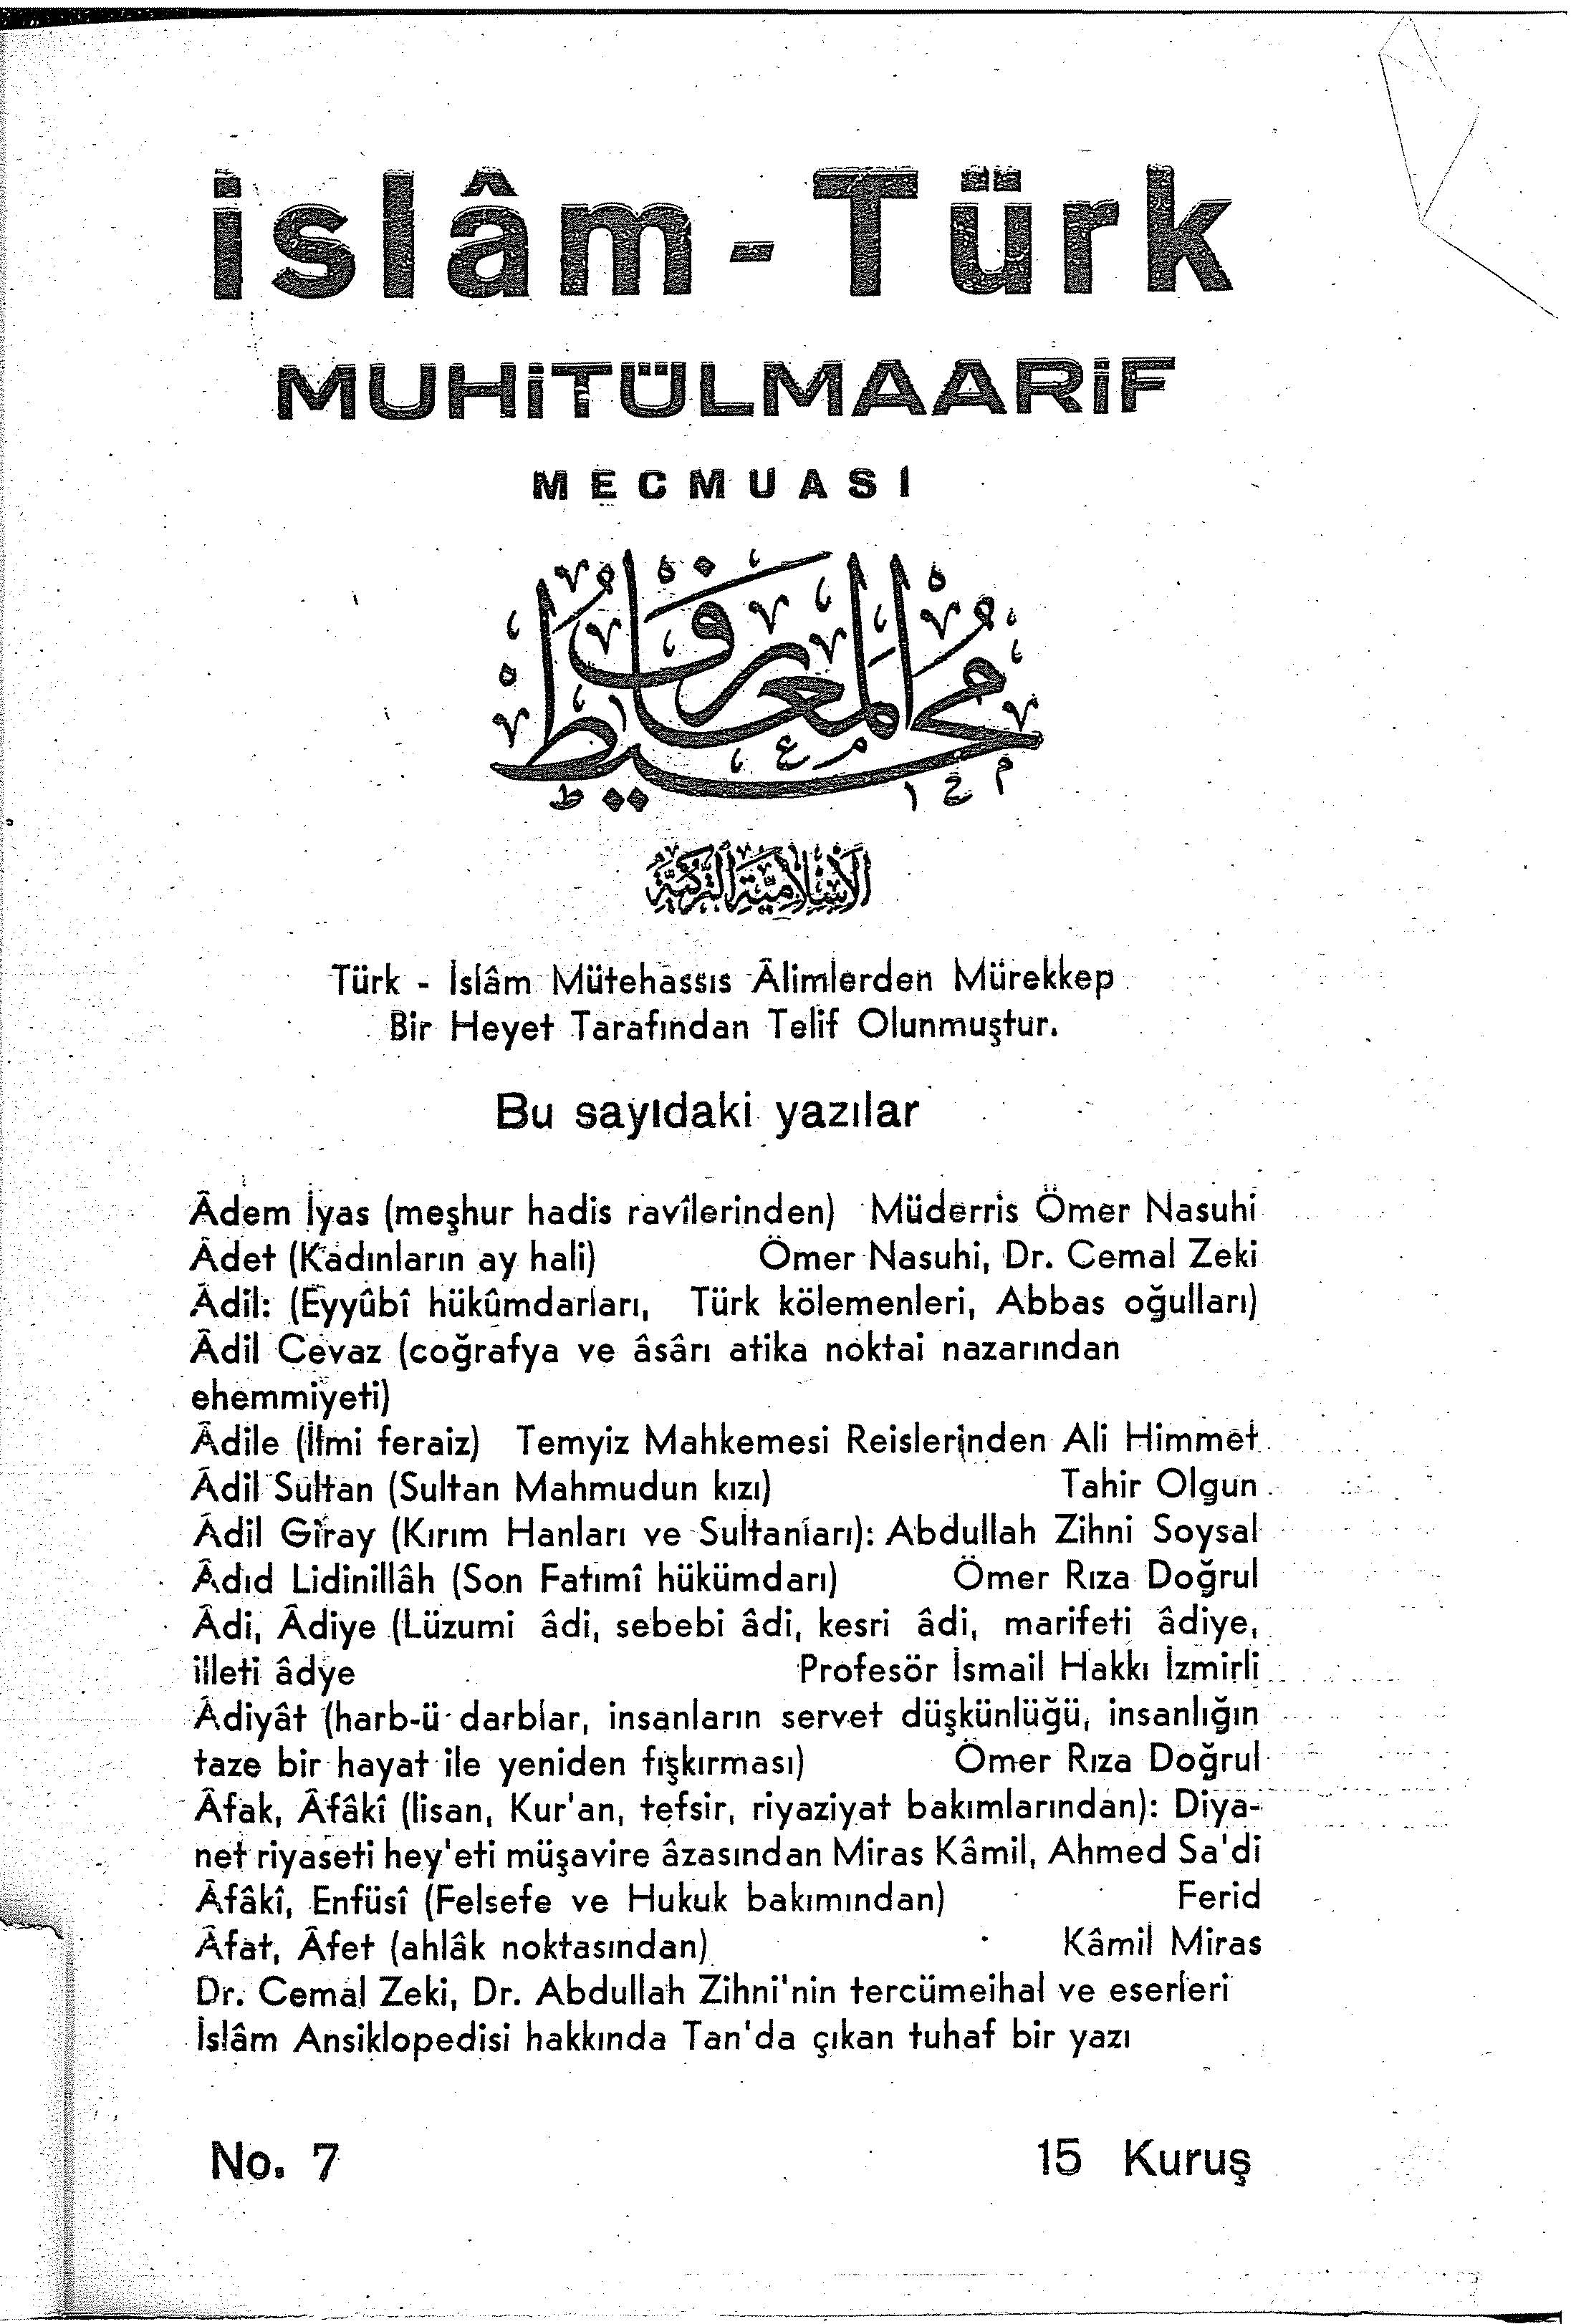 islâm - Türk
MUHiTÜLMAARiF
MECMUASI
محيط المعارف
الاسلامية التركية
Türk - İslâm Mütehassıs Âlimlerden Mürekkep
Bir Heyet Tarafından Telif Olunmuştur.
Bu sayıdaki yazılar
Âdem İyas (meşhur hadis ravîlerinden) Müderris Ömer Nasuhi
Âdet (Kadınların ay hali) Ömer Nasuhi, Dr. Cemal Zeki
Âdil: (Eyyûbî hükûmdarları, Türk kölemenleri, Abbas oğulları)
Âdil Cevaz (coğrafya ve âsârı atika noktai nazarından
ehemmiyeti)
Âdile (İlmi feraiz) Temyiz Mahkemesi Reislerinden Ali Himmet
Âdil Sultan (Sultan Mahmudun kızı) Tahir Olgun
Âdil Giray (Kırım Hanları ve Sultanları): Abdullah Zihni Soysal
Âdıd Lidinillâh (Son Fatımî hükümdarı) Ömer Rıza Doğrul
Âdi, Âdiye (Lüzumi âdi, sebebi âdi, kesri âdi, marifeti âdiye,
illeti âdye Profesör İsmail Hakkı İzmirli
Âdiyât (harb-ü darblar, insanların servet düşkünlüğü, insanlığın
taze bir hayat ile yeniden fışkırması) Ömer Rıza Doğrul
Âfak, Âfâkî (lisan, Kur'an, tefsir, riyaziyat bakımlarından): Diya-
net riyaseti hey'eti müşavire âzasından Miras Kâmil, Ahmed Sa'di
Âfâkî, Enfüsî (Felsefe ve Hukuk bakımından) Ferid
Âfat, Âfet (ahlâk noktasından) Kâmil Miras
Dr. Cemal Zeki, Dr. Abdullah Zihni'nin tercümeihal ve eserleri
İslâm Ansiklopedisi hakkında Tan'da çıkan tuhaf bir yazı
No. 7 15 Kuruş